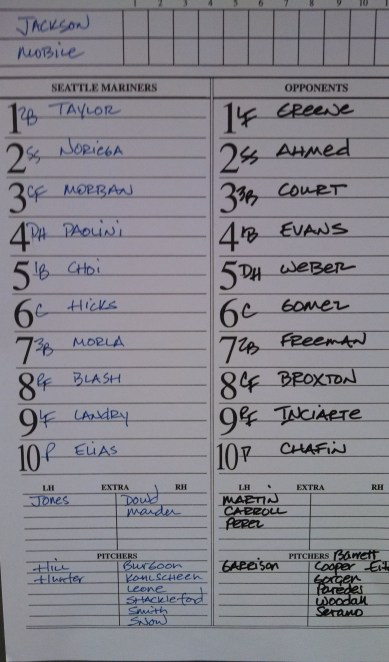 1 2 3 4 5 6 7 8 9 10
JACKSON
MOBILE
SEATTLE MARINERS OPPONENTS
1 2B TAYLOR 1 LF GREENE
2 SS NORIEGA 2 SS AHMED
3 CF MORBAN 3 3B COURT
4 DH PAOLINI 4 1B EVANS
5 1B CHOI 5 DH WEBER
6 C HICKS 6 C GOMEZ
7 3B MORLA 7 2B FREEMAN
8 RF BLASH 8 CF BROXTON
9 LF LANDRY 9 RF INCIARTE
10 P ELIAS 10 P CHAFIN
LH EXTRA RH LH EXTRA RH
Jones Dowd MARTIN
Marder CARROLL
PEREZ
PITCHERS PITCHERS Barrett
Hill Burgoon GARRISON Cooper
Hunter Kohlscheen
Leone Paredes
Shackleford Woodall
Smith Serano
Snow